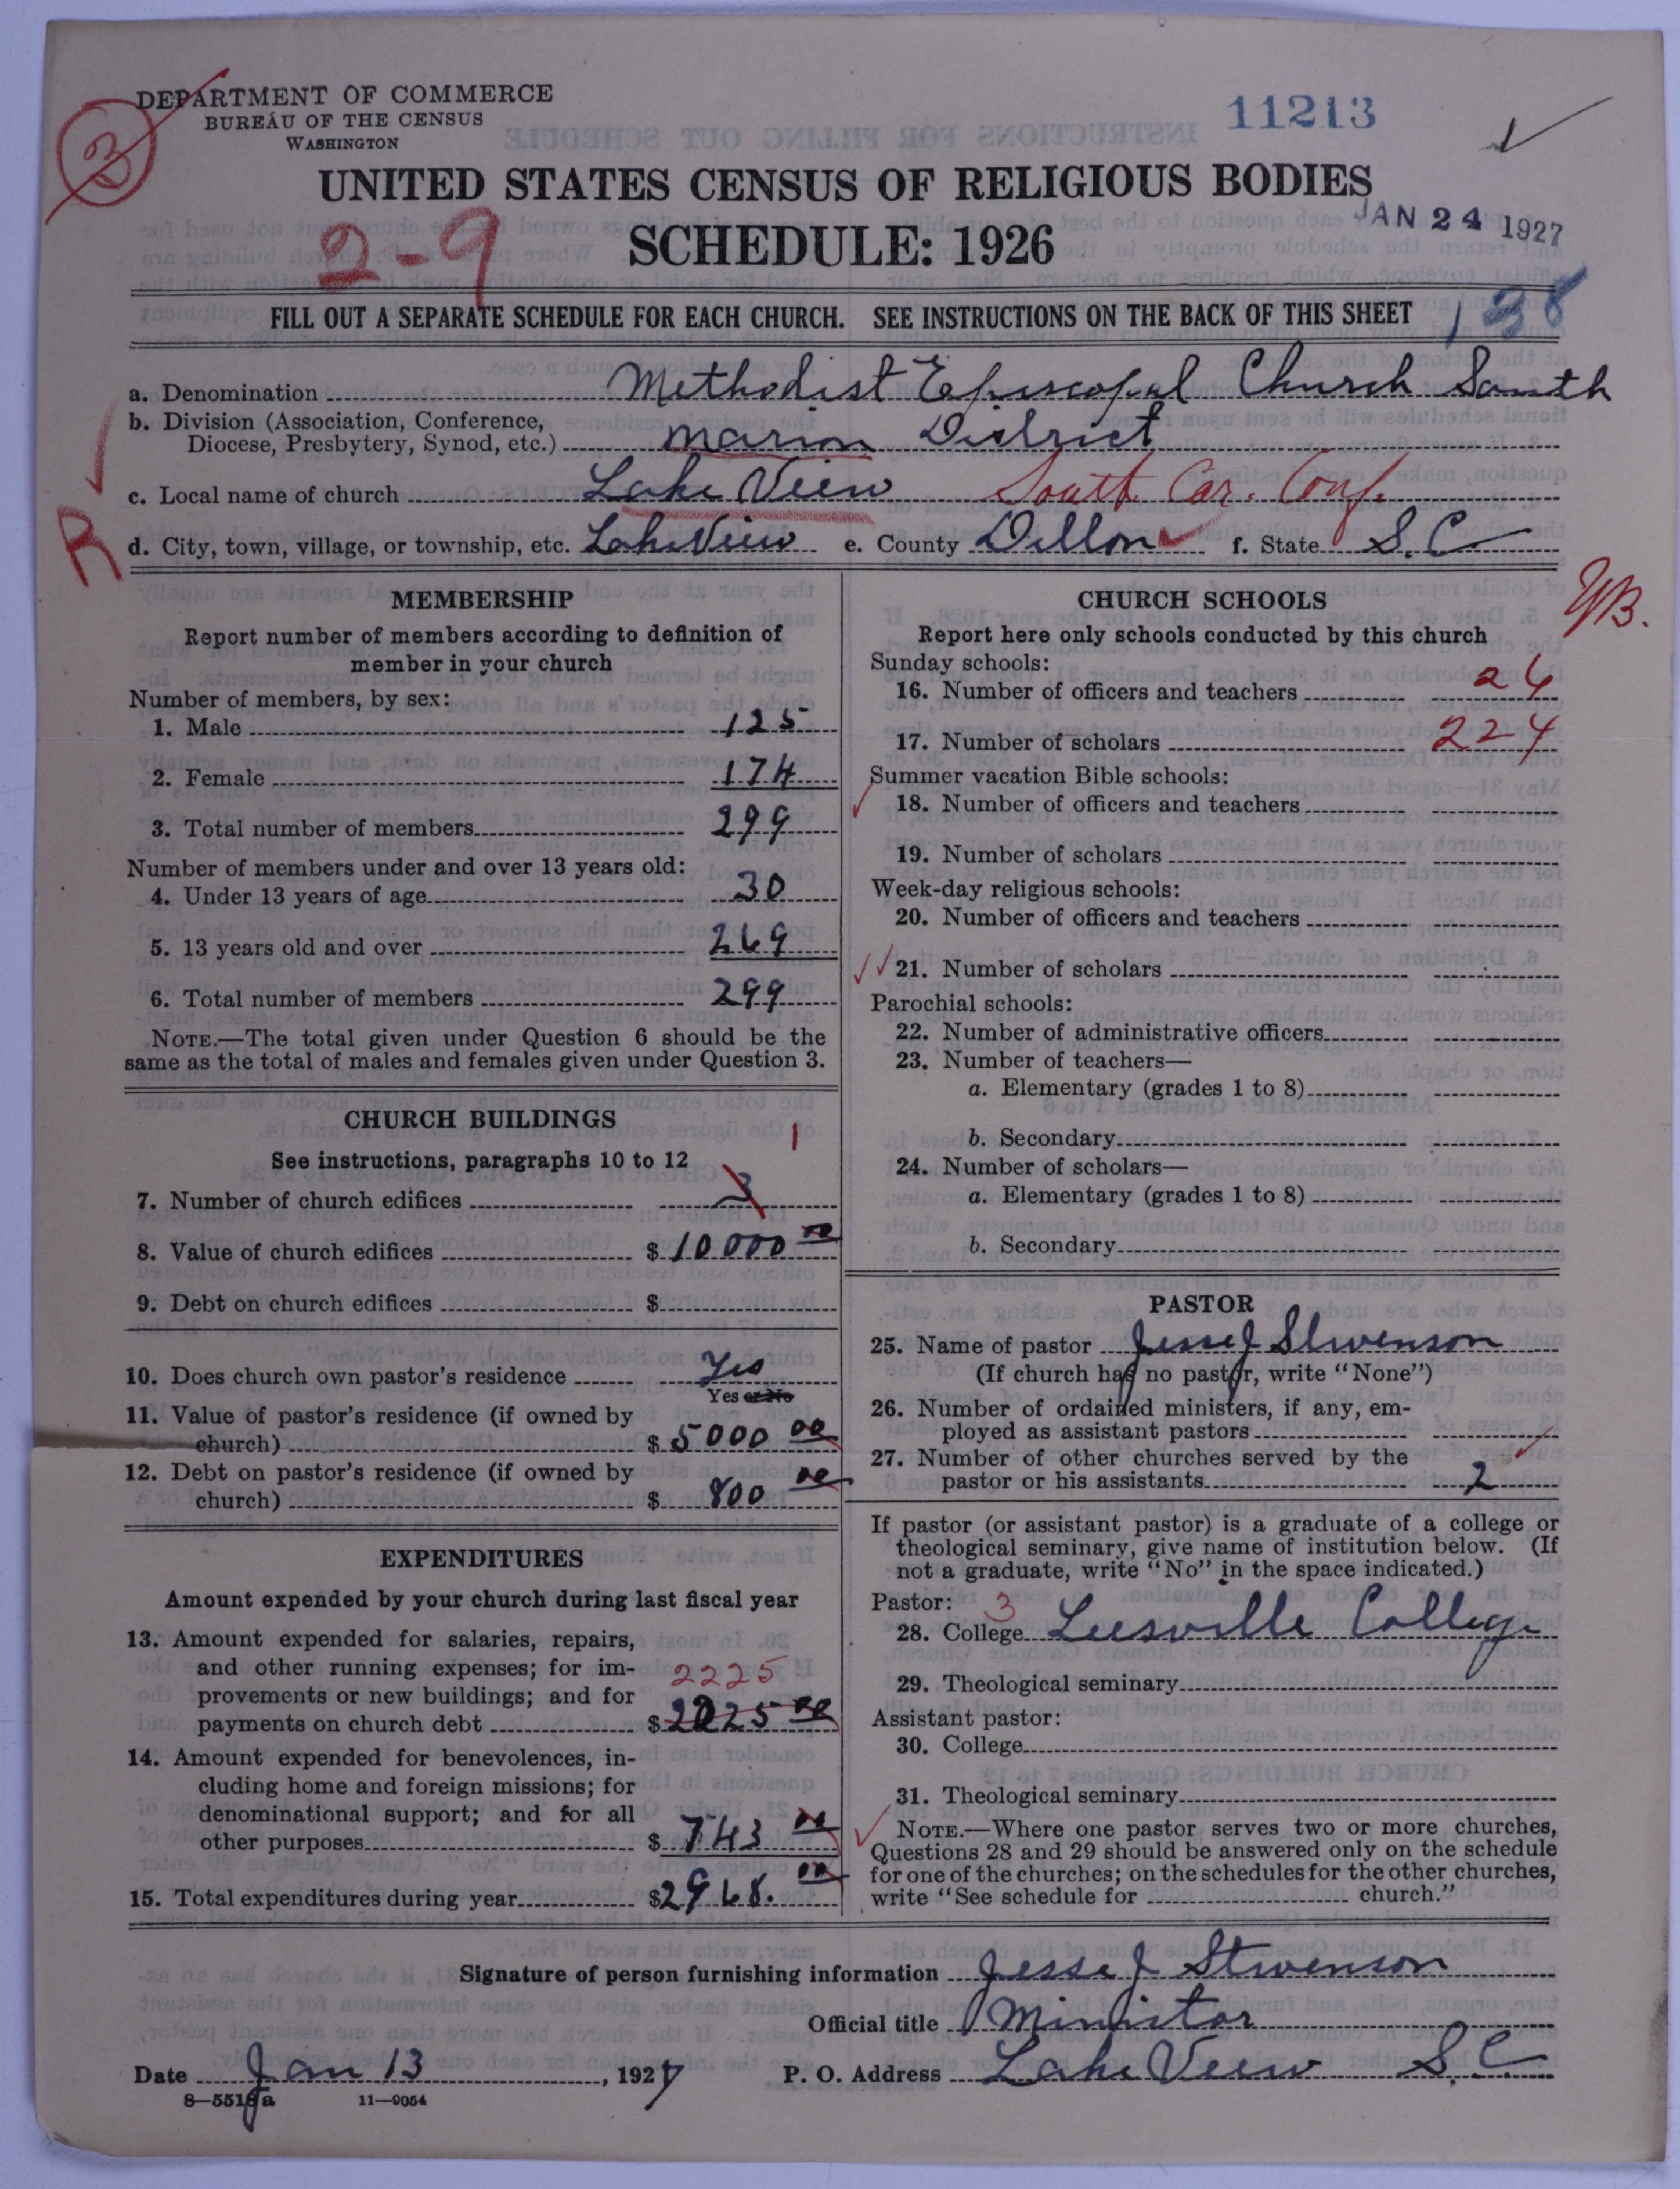 DEPARTMENT OF COMMERCE
BUREAU OF THE CENSUS
WASHINGTON
3
11213
UNITED STATES CENSUS OF RELIGIOUS BODIES
JAN 24 1927
2-9
SCHEDULE: 1926
FILL OUT A SEPARATE SCHEDULE FOR EACH CHURCH. SEE INSTRUCTIONS ON THE BACK OF THIS SHEET
138
a. Denomination Methodist Episcopal Church South
b. Division (Association, Conference,
Diocese, Presbytery, Synod, etc.) Marion District
c. Local name of church Lake View South Car. Conf.
R
d. City, town, village, or township, etc. Lake View e. County Dillon f. State S. C
MEMBERSHIP
Report number of members according to definition of
member in your church
Number of members, by sex:
1. Male 125
2. Female 174
3. Total number of members 299
Number of members under and over 13 years old:
4. Under 13 years of age 30
5. 13 years old and over 269
6. Total number of members 299
NOTE.—The total given under Question 6 should be the
same as the total of males and females given under Question 3.
CHURCH BUILDINGS
See instructions, paragraphs 10 to 12
1
7. Number of church edifices 3
8. Value of church edifices $ 10000 00
9. Debt on church edifices $
10. Does church own pastor's residence Yes
Yes or No
11. Value of pastor's residence (if owned by
church) $ 5000 00
12. Debt on pastor's residence (if owned by
church) $ 800 00
EXPENDITURES
Amount expended by your church during last fiscal year
13. Amount expended for salaries, repairs,
and other running expenses; for im-
2225
provements or new buildings; and for
payments on church debt $ 2225 00
14. Amount expended for benevolences, in-
cluding home and foreign missions; for
denominational support; and for all
other purposes $ 743 00
15. Total expenditures during year $ 2968. 00
CHURCH SCHOOLS
Report here only schools conducted by this church
Sunday schools:
16. Number of officers and teachers 26
17. Number of scholars 224
Summer vacation Bible schools:
18. Number of officers and teachers
19. Number of scholars
Week-day religious schools:
20. Number of officers and teachers
21. Number of scholars
Parochial schools:
22. Number of administrative officers
23. Number of teachers—
a. Elementary (grades 1 to 8)
b. Secondary
24. Number of scholars—
a. Elementary (grades 1 to 8)
b. Secondary
PASTOR
25. Name of pastor Jesse J Stevenson
(If church has no pastor, write "None")
26. Number of ordained ministers, if any, em-
ployed as assistant pastors
27. Number of other churches served by the
pastor or his assistants 2
If pastor (or assistant pastor) is a graduate of a college or
theological seminary, give name of institution below. (If
not a graduate, write "No" in the space indicated.)
Pastor: 3
28. College Leesville College
29. Theological seminary
Assistant pastor:
30. College
31. Theological seminary
NOTE.—Where one pastor serves two or more churches,
Questions 28 and 29 should be answered only on the schedule
for one of the churches; on the schedules for the other churches,
write "See schedule for church."
Signature of person furnishing information Jesse J Stevenson
Official title Minister
Date Jan 13, 1927 P. O. Address Lake View S. C.
8—5518a 11—9054